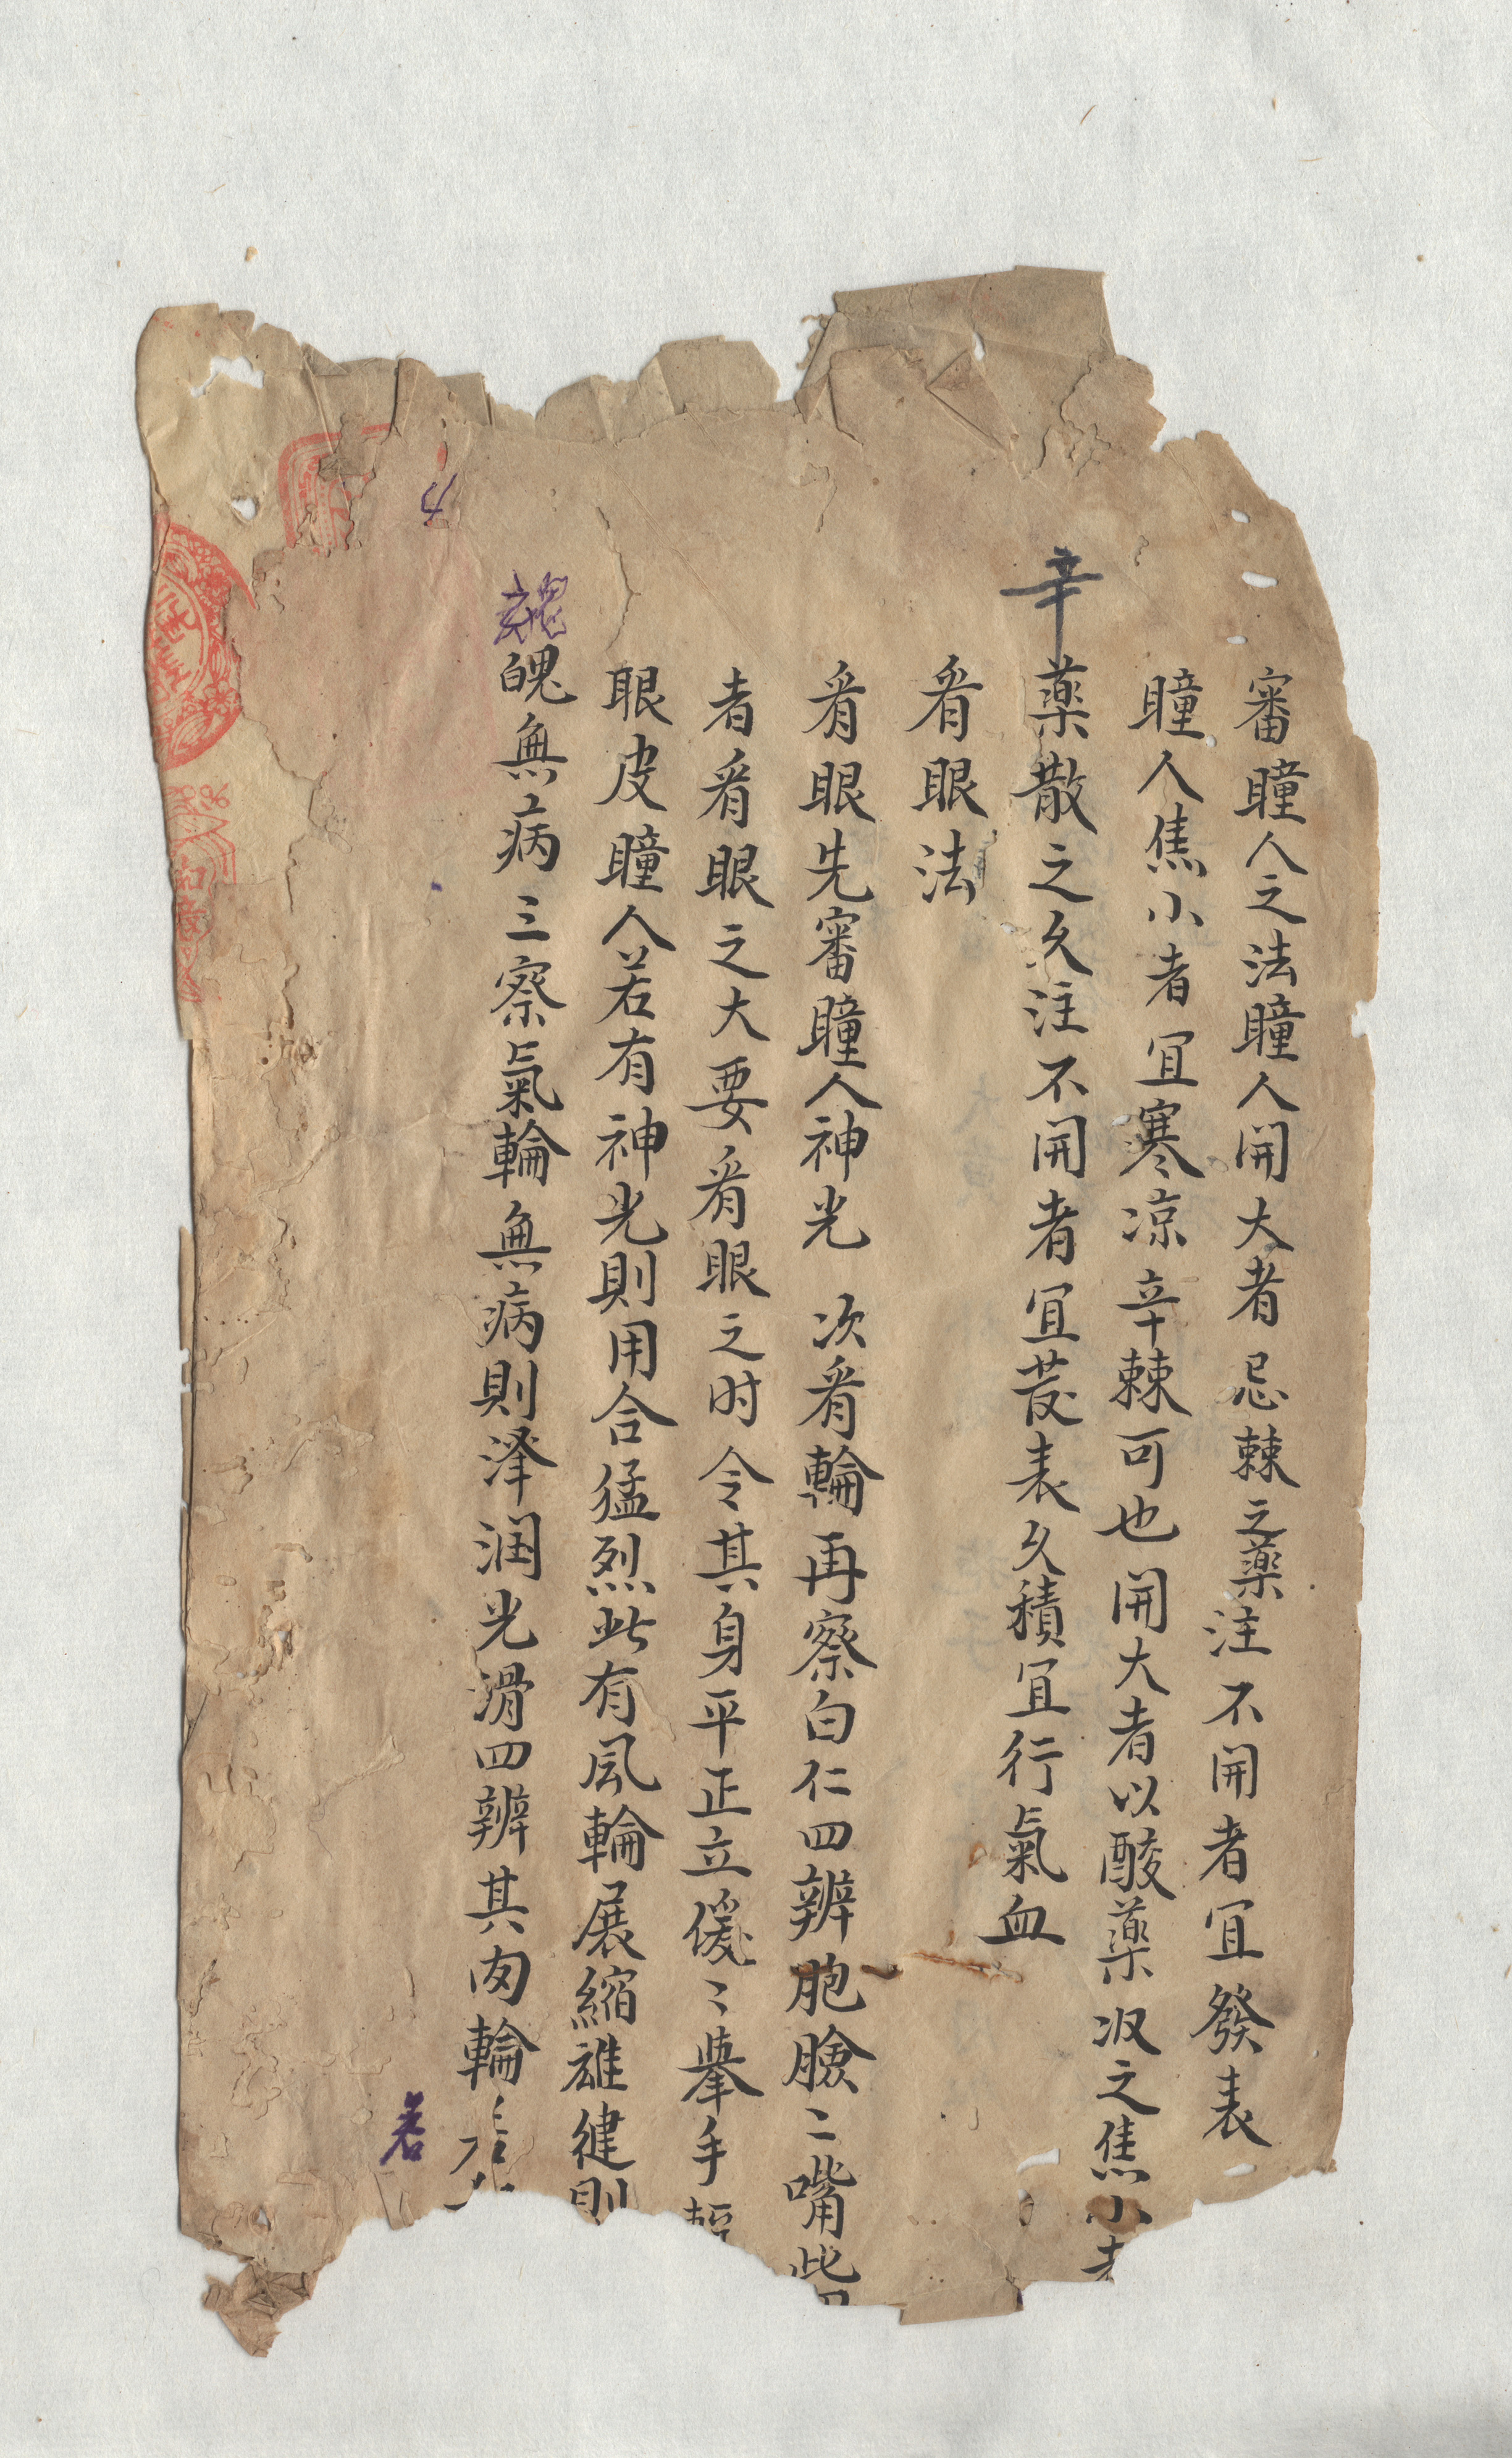 審瞳人之法瞳人開大者忌棘之藥注不開者宜發表
瞳人焦小者宜寒凉辛棘可也開大者以酸藥収之焦小者
辛藥散之久注不開者宜蕟表久積宜行氣血
看眼法
看眼先審瞳人神光 次看輪再察白仁四辨胞臉二嘴此
者看眼之大要看眼之时令其身平正立緩〻擧手輕
眼皮瞳人若有神光則用合猛烈此有風輪展縮雄健則
魄無病三察氣輪無病則泽润光滑四辨其肉輪
4
若